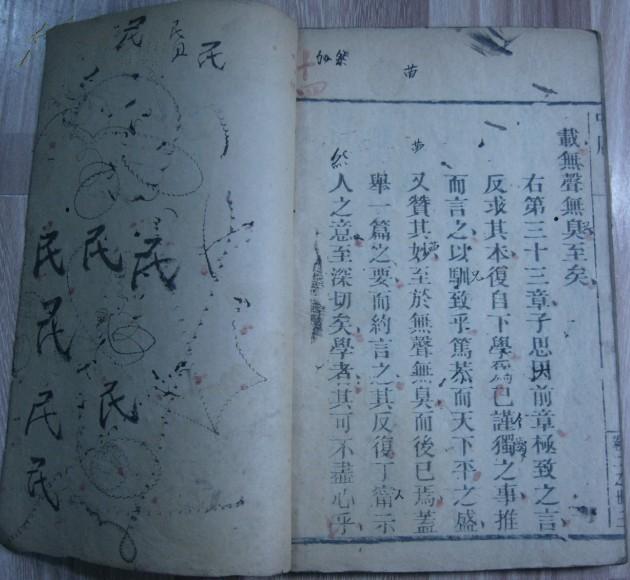 載無聲無臭至矣
右第三十三章子思因前章極致之言
反求其本復自下學為己謹獨之事推
而言之以馴致乎篤恭而天下平之盛
又贊其妙至於無聲無臭而後已焉蓋
舉一篇之要而約言之其反復丁寧示
人之意至深切矣學者其可不盡心乎
十四
苗
民
民
民
民
民
民
民
民
民
民